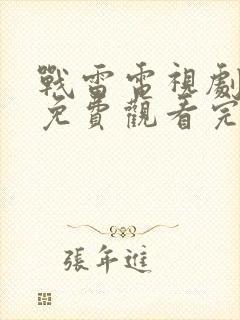 戰雷電視劇
免費觀看完
張年進